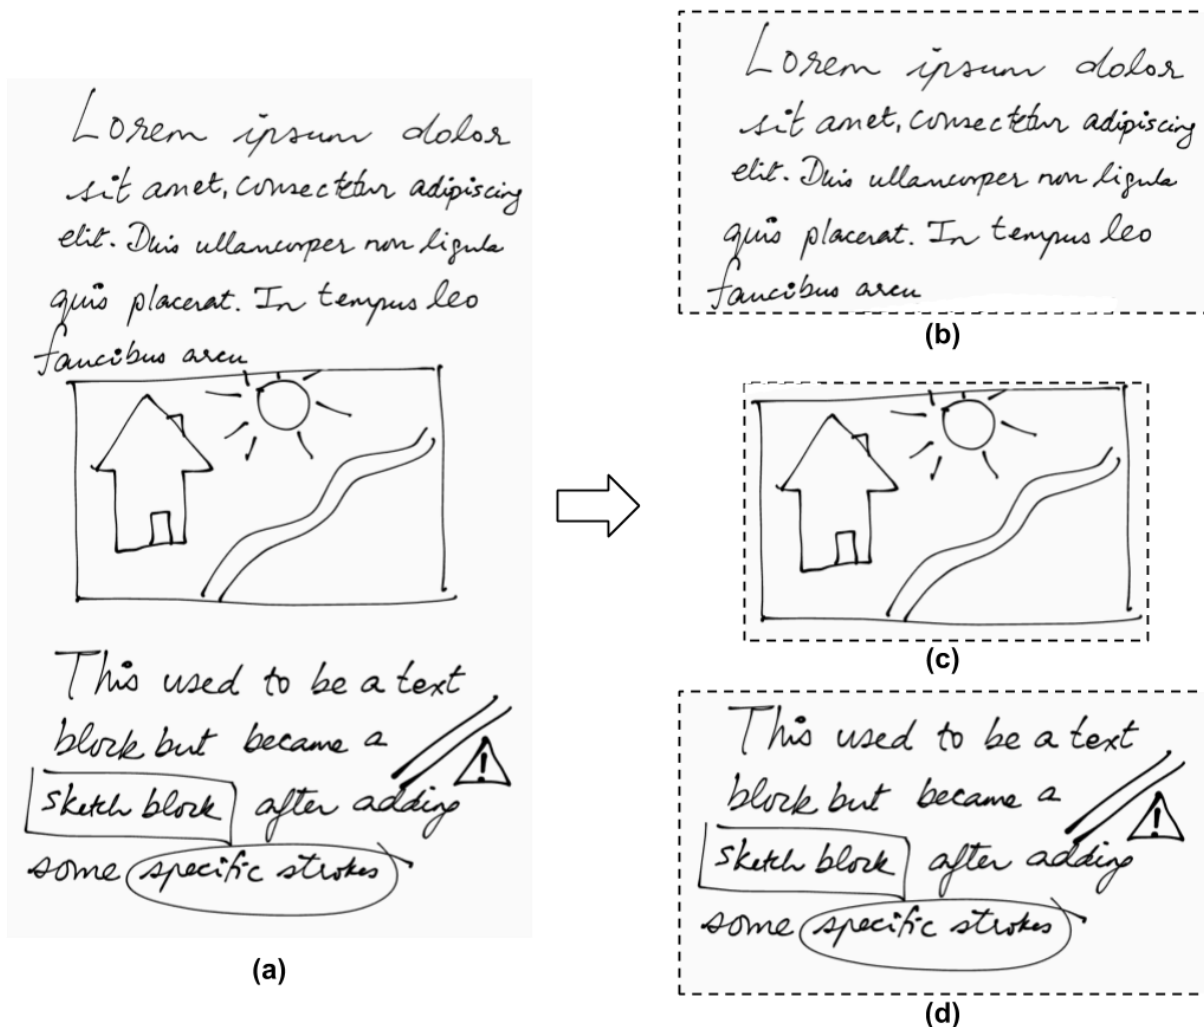 Lorem ipsum dolor
sit amet, consectetur adipiscing
elit. Duis ullamcorper non ligula
quis placerat. In tempus leo
faucibus arcu
This used to be a text
block but became a
!
sketch block after adding
some specific strokes
(a)
Lorem ipsum dolor
sit amet, consectetur adipiscing
elit. Duis ullamcorper non ligula
quis placerat. In tempus leo
faucibus arcu
(b)
(c)
This used to be a text
block but became a
!
sketch block after adding
some specific strokes
(d)